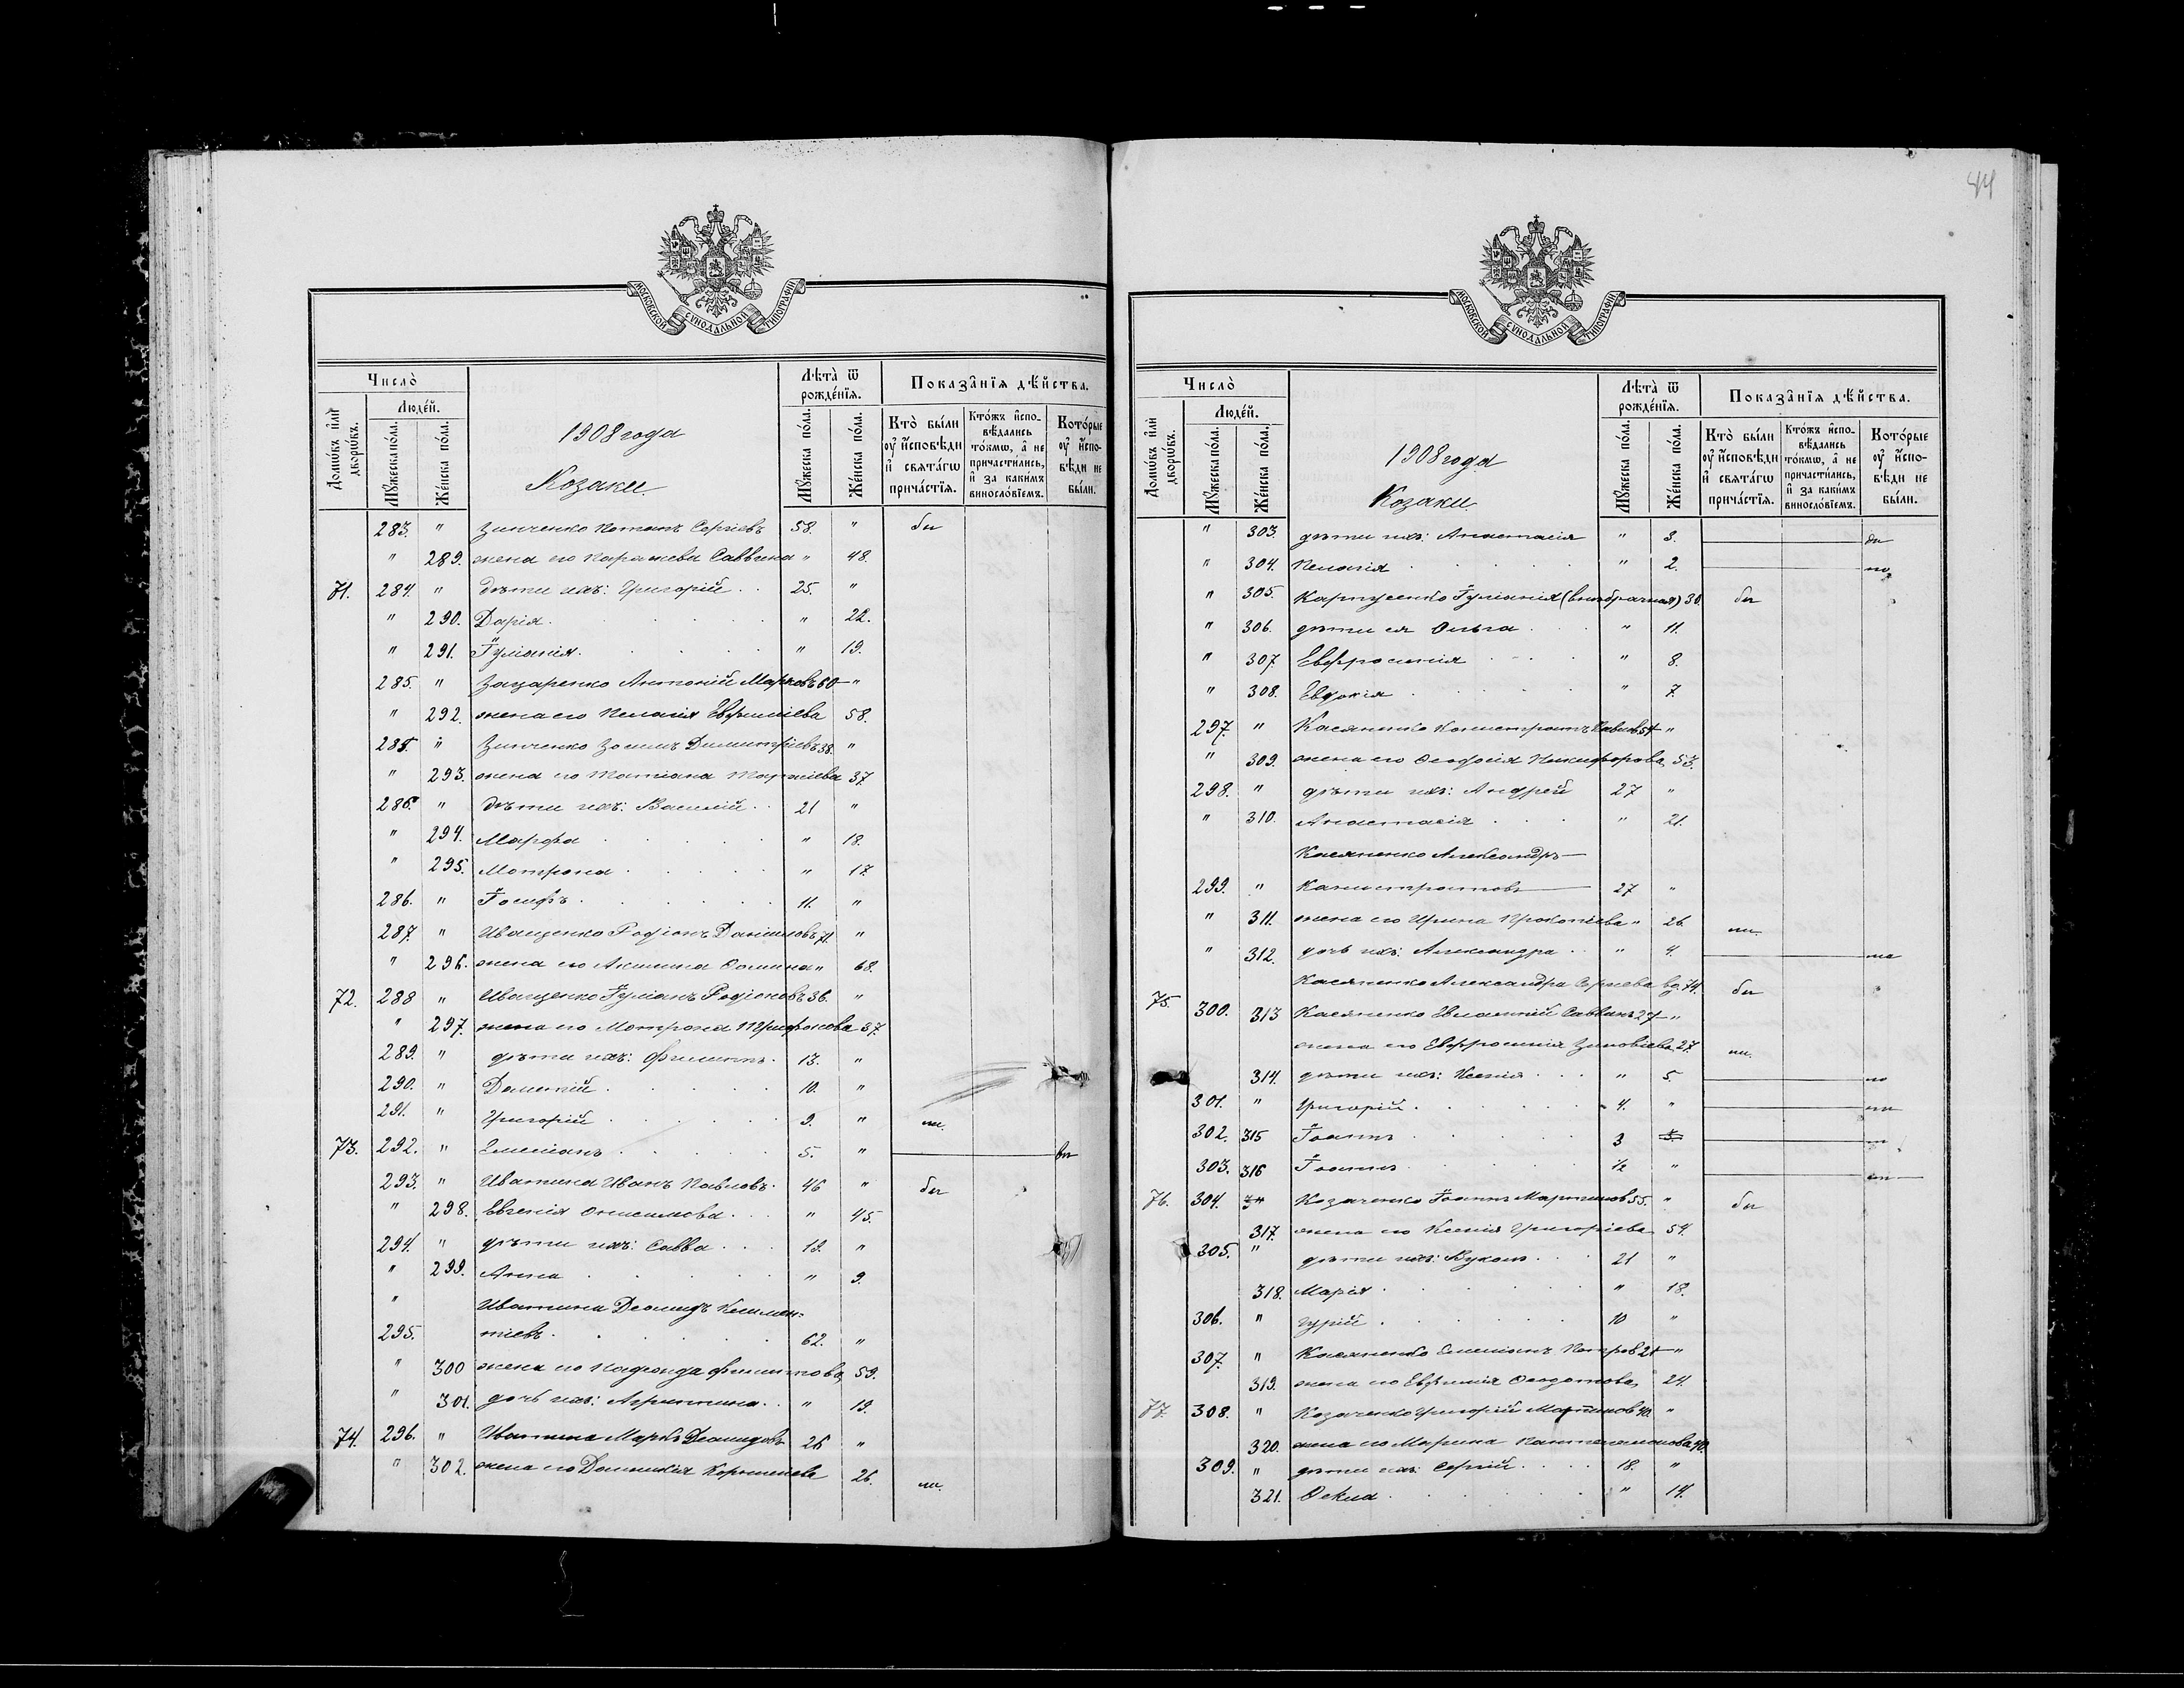 МОСКОВСКОЙ СѴНОДАЛЬНОЙ ТИПОГРАФІИ
Число̀
Домѡ́въ и҆лѝ дворѡ́въ.
Люде́й.
Мꙋ́жеска по́ла.
Же́нска по́ла.
1908 года
Козаки
Лѣта̀ ѿ рожде́нїѧ.
Мꙋ́жеска по́ла.
Же́нска по́ла.
Показа̑нїѧ дѣ́йства.
Кто̀ бы́ли ᲂу҆ и҆сповѣди и҆ свѧта́гѡ прича́стїѧ.
Кто́жъ и҆спо-вѣдались то́кмѡ, а҆ не причасти́лись, и҆ за каки́мъ винословїемъ.
Кото́рые ᲂу҆ и҆спо-вѣди не бы́ли.
283. " Зинченко Потапъ Сергіевъ 58. " бы
" 289. жена его Параскева Саввина " 48.
71. 284. " дѣти ихъ: Григорій 25. "
" 290. Дарія " 22.
" 291. Іуліанія " 19.
285. " Захаренко Антоній Марковъ 60 "
" 292. жена его Пелагія Евфиміева 58.
285. " Зинченко Зосимъ Димитріевъ 38. "
" 293. жена его Татіана 37
286. " дѣти ихъ: Василій 21 "
" 294. Марфа " 18.
" 295. Матрона " 17.
286. " Іосифъ 11. "
287. " Иващенко Родіонъ Даниловъ 71. "
" 296. жена его Акилина " 68.
72. 288 " Иващенко Іуліанъ Родіоновъ 36. "
" 297. жена его Матрона Трифонова 37.
289. " дѣти ихъ: Филиппъ 13. "
290. " Дометій 10. "
291. " Григорій 9. "
73. 292. " Емеліанъ 5. "
293. " Иватина Иванъ Павловъ 46 " бы
" 298. Евгенія Онисимова " 45.
294. " дѣти ихъ: Савва 19. "
" 299. Анна " 9.
" Иватина Деомидъ Климен-
295. тіевъ 62. "
" 300 жена его Филиппова 59.
" 301. дочь ихъ: Агрипина " 19.
74. 296. " Иватина Маркъ Деомидовъ 26 "
" 302. жена его Домникія 26.
44
МОСКОВСКОЙ СѴНОДАЛЬНОЙ ТИПОГРАФІИ
Число̀
Домѡ́въ и҆лѝ дворѡ́въ.
Люде́й.
Мꙋ́жеска по́ла.
Же́нска по́ла.
1908 года
Козаки
Лѣта̀ ѿ рожде́нїѧ.
Мꙋ́жеска по́ла.
Же́нска по́ла.
Показа̑нїѧ дѣ́йства.
Кто̀ бы́ли ᲂу҆ и҆сповѣди и҆ свѧта́гѡ прича́стїѧ.
Кто́жъ и҆спо-вѣдались то́кмѡ, а҆ не причасти́лись, и҆ за каки́мъ винословїемъ.
Кото́рые ᲂу҆ и҆спо-вѣди не бы́ли.
" 303. дѣти ихъ: Анастасія " 3.
" 304. Пелагія " 2.
" 305. Карпусенко Іуліанія (внѣбрачная) 30. бы
" 306. дѣти ея Ольга " 11.
" 307. Евфросинія " 8.
" 308. Евдокія " 7.
297. " Касяненко Калистратъ 54 "
" 309. жена его Феодосія Никифорова 53.
298. " дѣти ихъ: Андрей 27 "
" 310. Анастасія " 21.
Касяненко Александръ
299. " Калистратовъ 27 "
" 311. жена его Ирина Прокопіева " 26
" 312. дочь ихъ: Александра " 4.
75. Касяненко Александра Сергіева вд. 74. бы
300. 313 Касяненко Евлампій Саввинъ 27 "
жена его Евфросинія Зиновіева 27.
314. дѣти ихъ: Ксенія " 5.
301. " Григорій 4. "
302. 315 Іоаннъ 3
303. 316 Іоаннъ 1/2 "
76. 304. Козаченко Іоаннъ Мартиновъ 55. " бы
317. жена его Ксенія Григоріева 54.
305. " дѣти ихъ: Вуколъ 21 "
318. Марія " 18.
306. " Гурій 10 "
307. " Касяненко Емеліанъ Петровъ 21 "
319. жена его Евфимія Феодотова 24.
77. 308. " Козаченко Григорій Мартиновъ 40. "
320. жена его Марина Пантелеимонова 40.
309. " дѣти ихъ: Сергій 18. "
321. Фекла " 14.